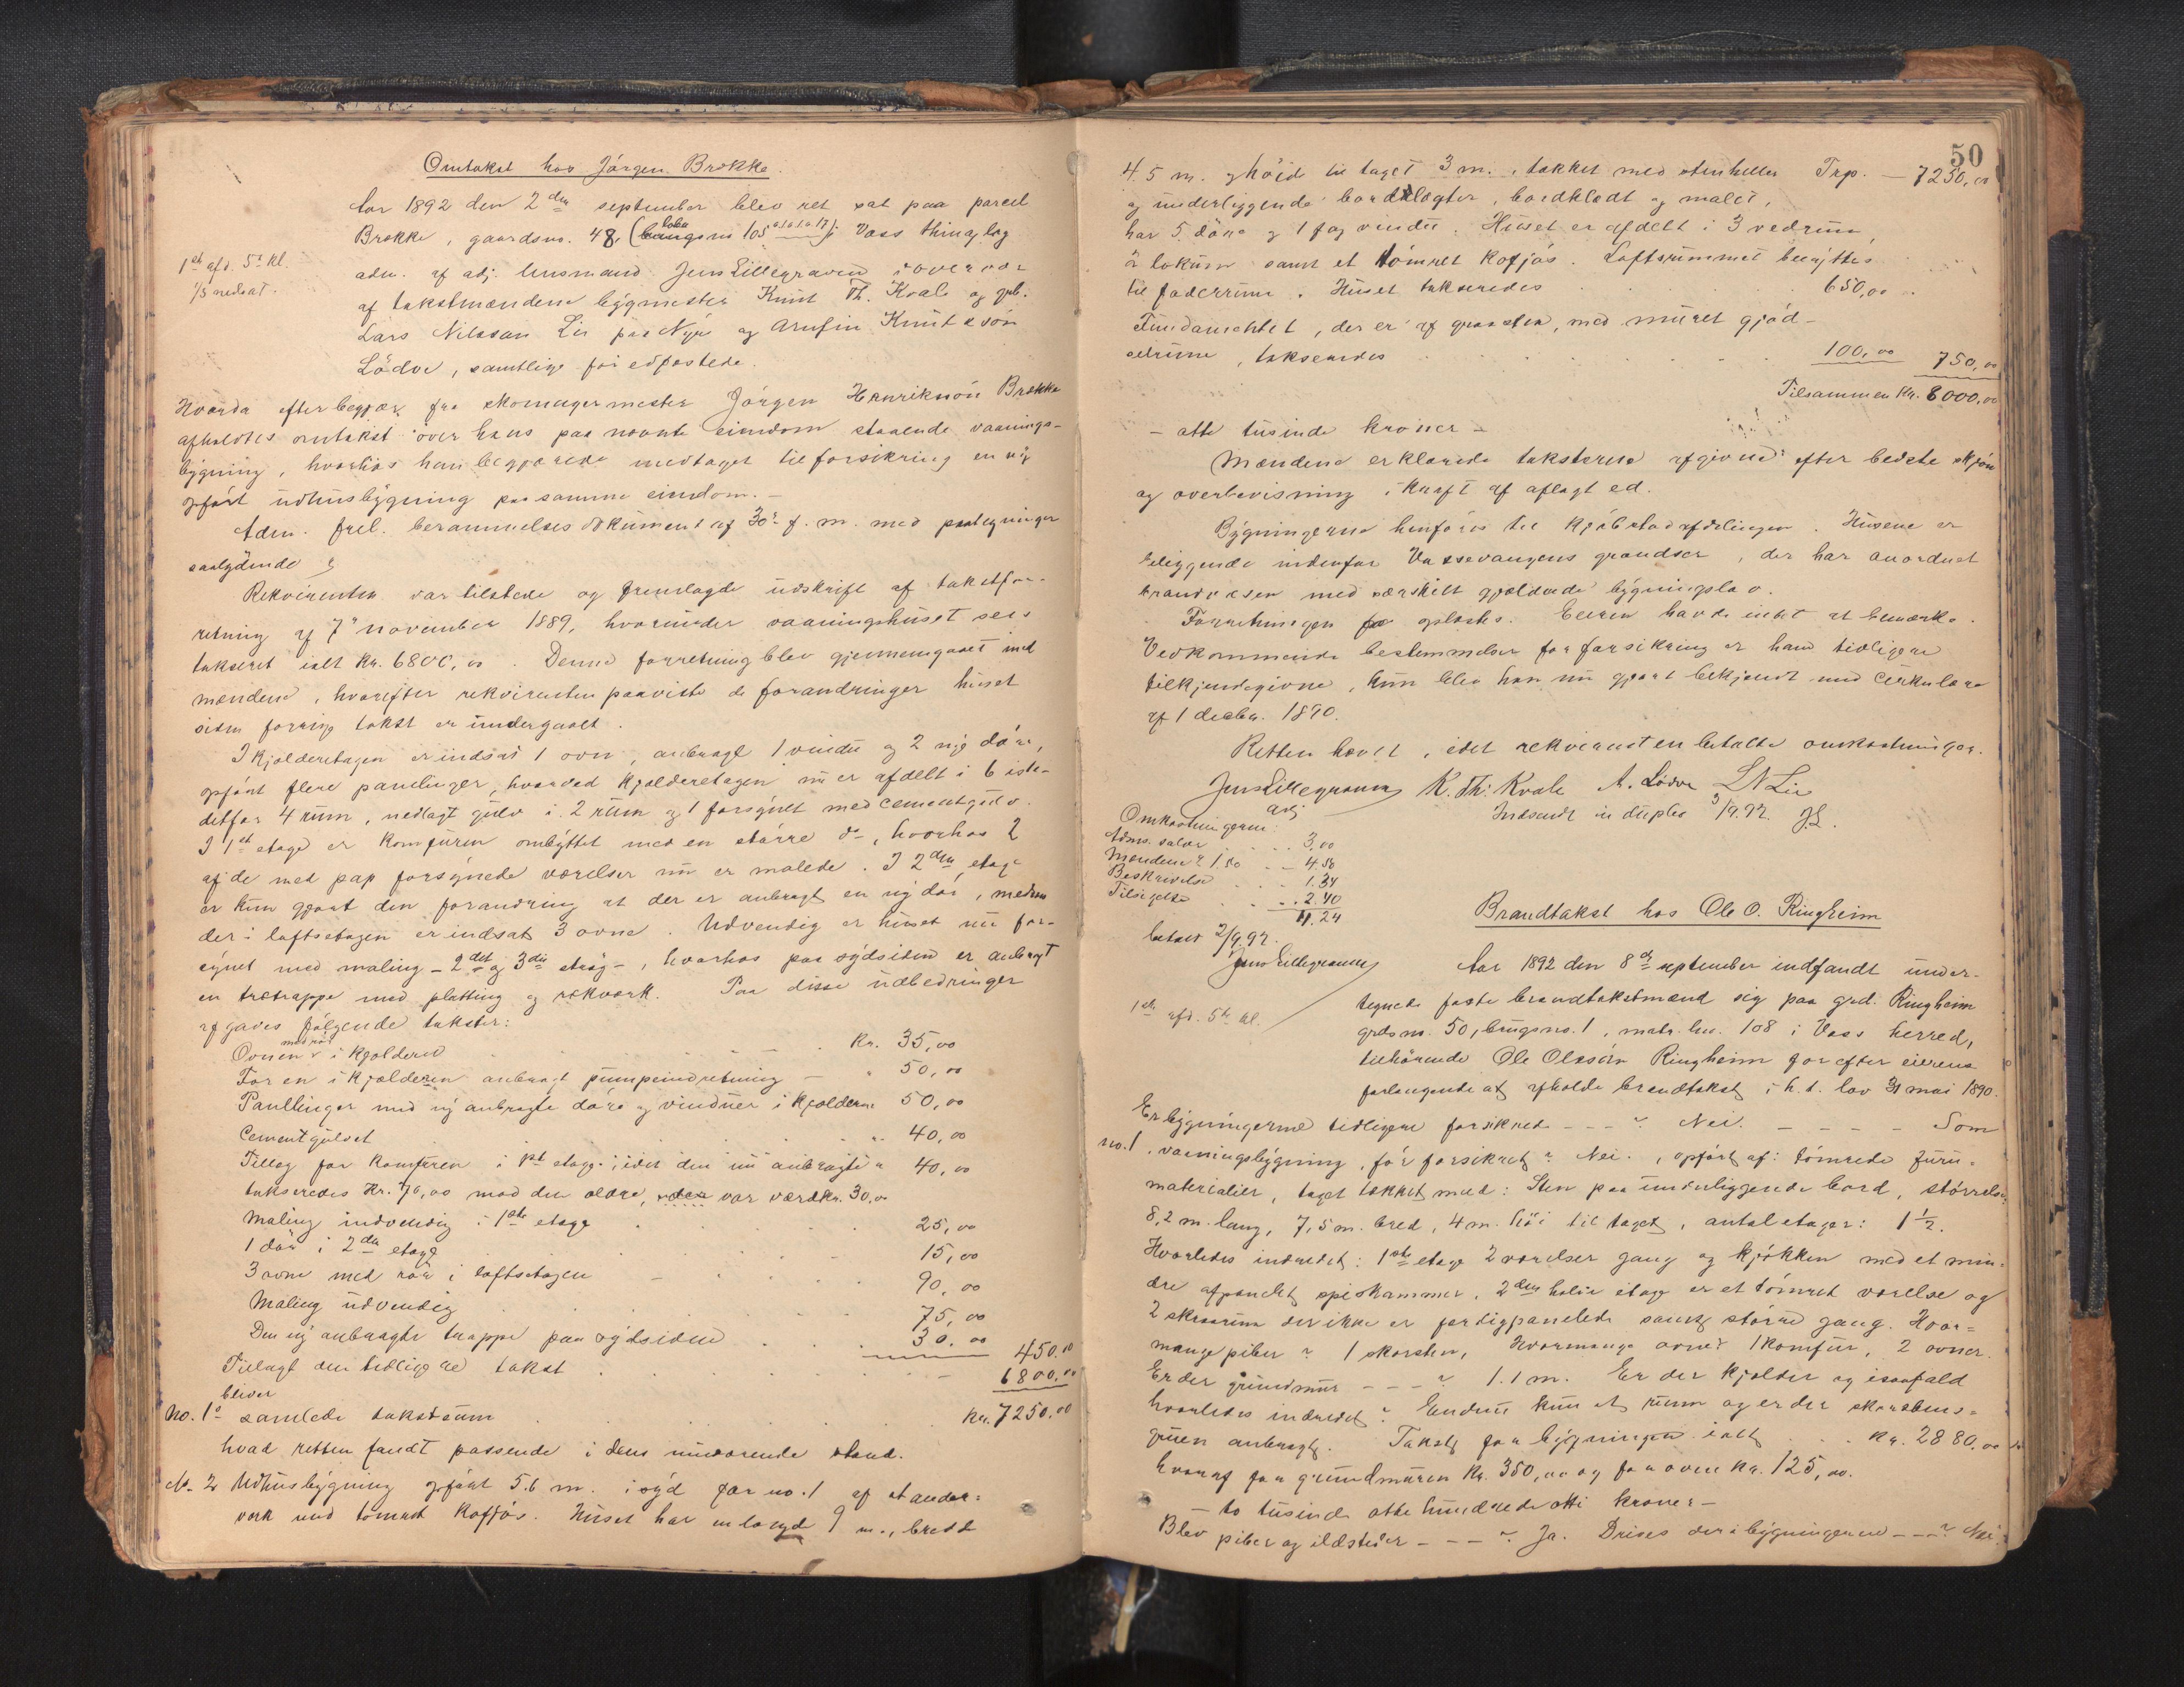 Omtakst hos Jörgen Brække.
Aar 1892 den 2den september blev ret sat paa parcel
Brække, gaardsno. 48, (brugsno 105 Voss thinglag
1ste afd. 5te kl.
1/3 nedsat.
adm. af adj. lensmand Jens Lillegraven i overvær
af takstmændene bygmester Knut Th. Kvale og grb.
Lars Nilssøn Lie paa Nyre og Arnfin Knutssøn
Lödve, samtlige för edfæstede.
Hvorda efter begjær fra skomagermester Jörgen Henrikssön Brække
afholdtes omtakst over hans paa nævnte eiendom staaende vaanings-
bygning, hvorhos han begjærede medtaget til forsikring en ny
opfört udhusbygning paa samme eiendom. -
Adm. frel. berammelses dokument af 30te f. m. med paategninger
saalydende
Rekvirenten var tilstede og fremlagde udskrift af takstfor-
retning af 7de november 1889, hvorunder vaaningshuset sees
takseret ialt Kr. 6800,00. Denne forretning blev gjennemgaaet med
mændene, hvorefter rekvirenten paaviste de forandringer huset
siden forrige takst er undergaaet.
I kjælderetagen er indsat 1 ovn, anbragt 1 vindu og 2 nye döre,
opfört flere panelinger, hvorved kjælderetagen nu er afdelt i 6 iste-
detfor 4 rum, nedlagt gulv i 2 rum og 1 forsynet med cementgulv.
I 1ste etage er komfuren ombyttet med en större do, hvorhos 2
af de med pap forsynede værelser nu er malede. I 2den etage
er kun gjort den forandring at der er anbragt en ny dör, medens
der i loftsetagen er indsat 3 ovne. Udvendig er huset nu for-
synet med maling - 2det og 3die strög -, hvorhos paa sydsiden er anbragt
en trætrappe med platting og rækværk. Paa disse udbedringer
afgaves fölgende takster:
Ovnen med rör i kjælderen Kr. 35,00
For en i kjælderen anbragt pumpeindretning - " 50,00
Panelinger med ny anbragte döre og vinduer i kjælderne 50,00
Cementgulvet " 40,00
Tillæg for komfuren i 1ste etage, idet den nu anbragte " 40,00
takseredes Kr. 70,00 mod den ældre, der var værd Kr. 30,00
Maling indvendig i 1ste etage 25,00
1 dör i 2den etage 15,00
3 ovne med rör i loftsetagen 90,00
Maling udvendig 75,00
Den ny anbragte trappe paa sydsiden 30.00 450.00
Tillagt den tidligere takst 6800.00
bliver
No. 1s samlede takstsum Kr. 7250.00
hvad retten fandt passende i dens nuværende stand.
No. 2 Udhusbygning opfört 5.6 m. i syd for no. 1 af stander-
værk med tömret kofjös. Huset har en længde 9 m., bredde
50
4 5 m. og höid til taget 3 m., tækket med stenheller Trp. - 7250,00
og underliggende bordklægter, bordklædt og malet,
har 5 döre og 1 fag vindu. Huset er afdelt i 3 vedrum,
2 lokum samt et tömret kofjös. Loftsrummet benyttes
til foderrum. Huset takseredes 650,00
Fundamentet, der er af graasten, med muret gjöd-
selrum, takseredes 100,00 750,00
Tilsammen Kr. 8000,00
- otte tusinde kroner -
Mændene erklærede taksterne afgivne efter bedste skjön
og overbevisning i kraft af aflagt ed.
Bygningerne henföres til kjöbstadafdelingen. Husene er
beliggende indenfor Vossevangens grændser, der har anordnet
brandvæsen med særskilt gjældende bygningslov.
Forretningen oplæstes. Eieren havde intet at bemærke.
Vedkommende bestemmelser for forsikring er ham tidligere
tilkjendegivne, kun blev han nu gjort bekjendt med cirkulære
af 1 decbr. 1890.
Retten hævet, idet rekvirenten betalte omkostninger.
Jens Lillegraven K. Th. Kvale A. Lödve L N Lie
adj
Indsendt in duplo 3/9.92. JL.
Omkostningerne:
Adms. salær 3,00
Mændene à 1.50 - 4.50
Beskrivelse 1.34
Tilsigelse 2.40
11.24
betalt 2/9.92.
Jens Lillegraven
Brandtakst hos Ole O. Ringheim
Aar 1892 den 8de september indfandt under-
1ste afd. 5te kl.
tegnede faste brandtakstmænd sig paa grd. Ringheim
grdsno. 50, brugsno. 1, matr. lno. 108 i Voss herred,
tilhörende Ole Olssön Ringheim for efter eierens
forlangende at afholde brandtakst i h. t. lov 31 mai 1890.
Er bygningerne tidligere forsikrede - - - ? Nei. - - - - Som
no. 1, vaaningsbygning, för forsikret? Nei., opfört af: tömrede furu-
materialier, taget tækket med: Sten paa underliggende bord, störrelse:
8,2 m. lang, 7,5 m. bred, 4 m. höi til taget, antal etager: 1 1/2.
Hvorledes indredet: 1ste etage 2 værelser gang og kjökken med et min-
dre afpanelet spiskammer, 2den halve etage er et tömret værelse og
2 skraarum der ikke er færdigpanelede samt större gang. Hvor-
mange piber? 1 skorsten, Hvormange ovne? 1 komfur, 2 ovner.
Er der grundmur - - - ? 1.1 m. Er der kjelder og isaafald
hvorledes indredet? Endnu kun et rum og er der skorstens-
gruen anbragt. Takst for bygningen ialt Kr. 2880,00
hvoraf for grundmuren Kr. 350,00 og for ovne Kr. 125,00.
- to tusinde otte hundrede otti kroner -
Blev piber og ildsteder - - - ? Ja. Drives der i bygningerne - - - ? Nei.